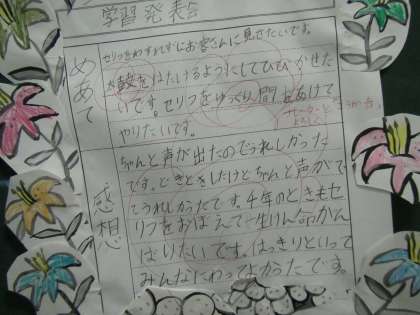 学習発表会
めあて
セリフをわすれずにお客さんに見せたいです。
太鼓をはたけるようにしてひびかせた
いです。セリフをゆっくり、間をあけて
やりたいです。
感想
ちゃんと声が出たのでうれしかった
です。どきどきしたけどちゃんと声がで
てうれしかったです。4年のときもセ
リフをおぼえて一生けん命がん
ばりたいです。はっきりといって
みんなにわってよかったです。